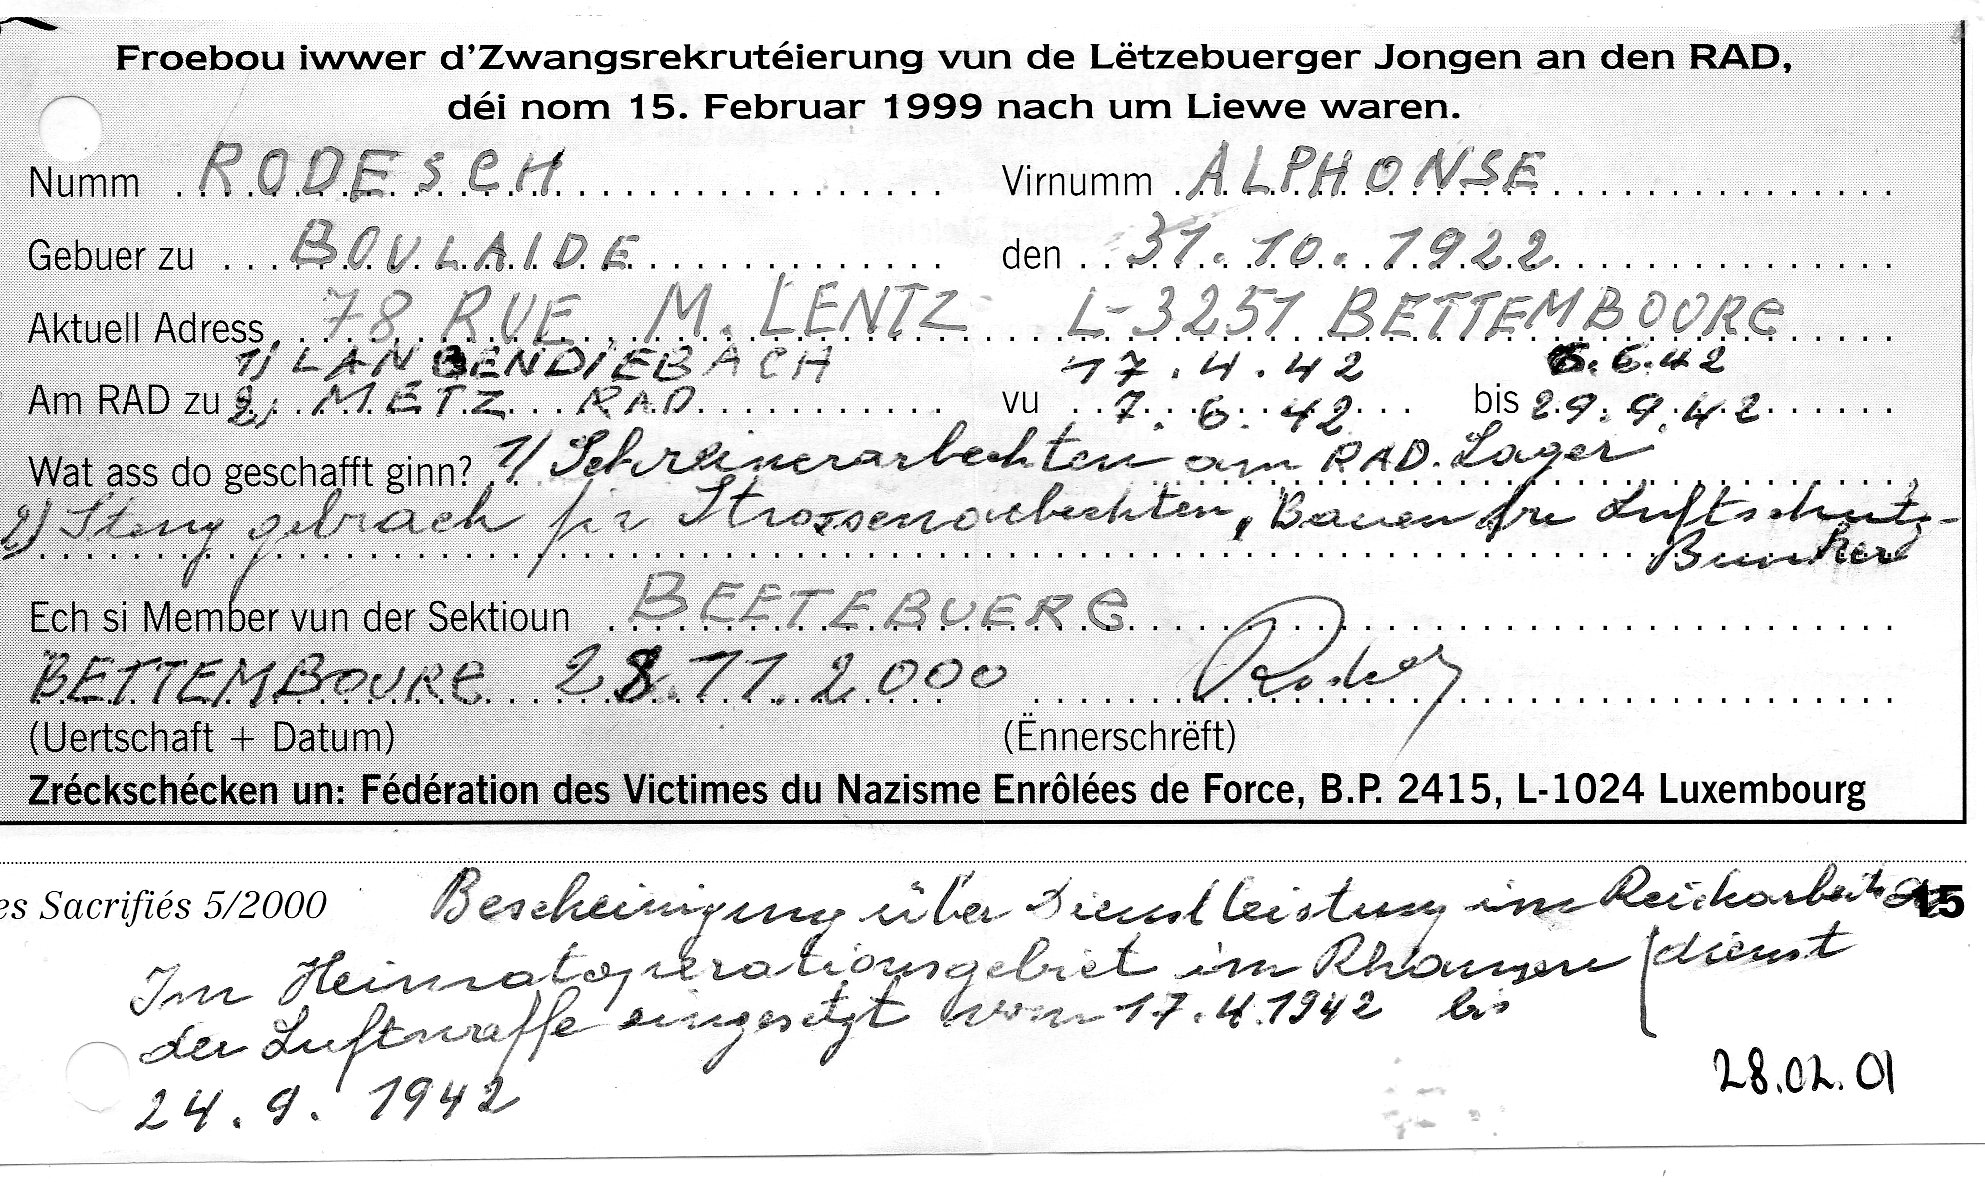 Froebou iwwer d'Zwangsrekrutéierung vun de Lëtzebuerger Jongen an den RAD,
déi nom 15. Februar 1999 nach um Liewe waren.
Numm RODESCH Virnumm ALPHONSE
Gebuer zu BOULAIDE den 31.10.1922
Aktuell Adress 78 RUE M. LENTZ L-3251 BETTEMBOURG
1) LANGENDIEBACH 17.4.42 6.6.42
Am RAD zu 2) METZ RAD vu 7.6.42 bis 29.9.42
Wat ass do geschafft ginn? 1) Schreinerarbechten am RAD. Lager
2) Steng gebrach fir Strossenarbechten, Bauen fir Luftschutz-
Bunker
Ech si Member vun der Sektioun BEETEBUERG
BETTEMBOURG 28.11.2000
(Uertschaft + Datum) (Ënnerschrëft)
Zréckschécken un: Fédération des Victimes du Nazisme Enrôlées de Force, B.P. 2415, L-1024 Luxembourg
es Sacrifiés 5/2000 Bescheinigung über Dienstleistung im Reicharbeits 15
dienst
Im Heimatoperationsgebiet im Rahmen
der Luftwaffe eingesetzt vom 17.4.1942 bis
24.9.1942
28.02.01